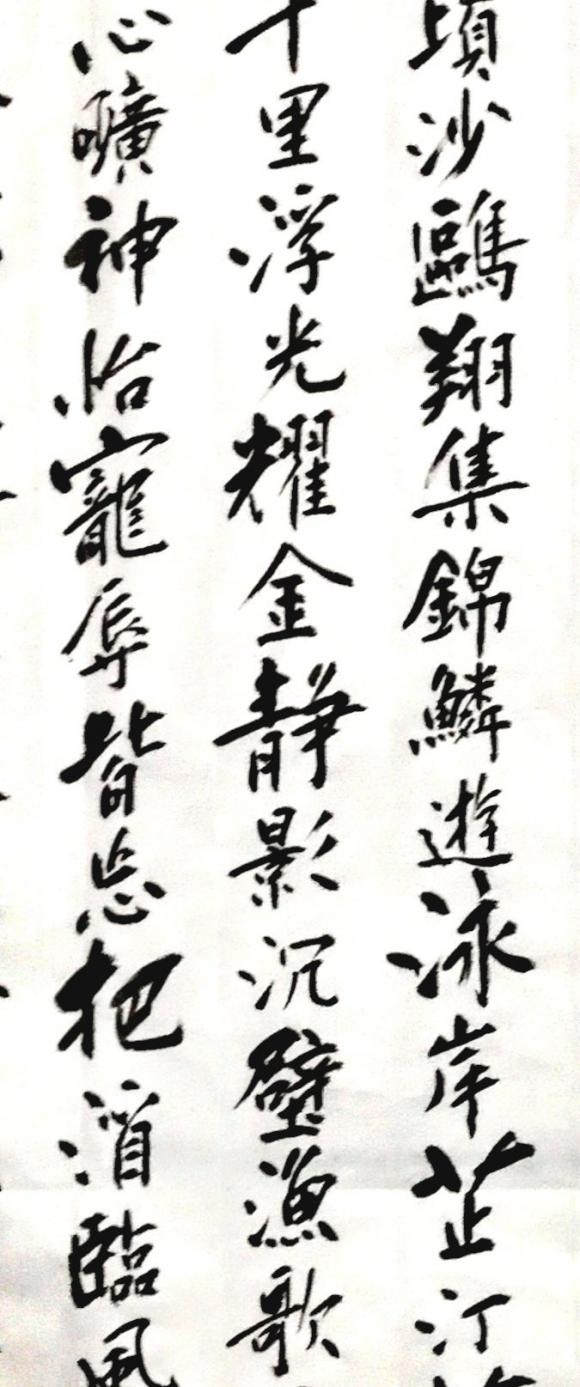 頃沙鷗翔集錦鱗遊泳岸芷汀
千里浮光耀金靜影沉璧漁歌
心曠神怡寵辱皆忘把酒臨風